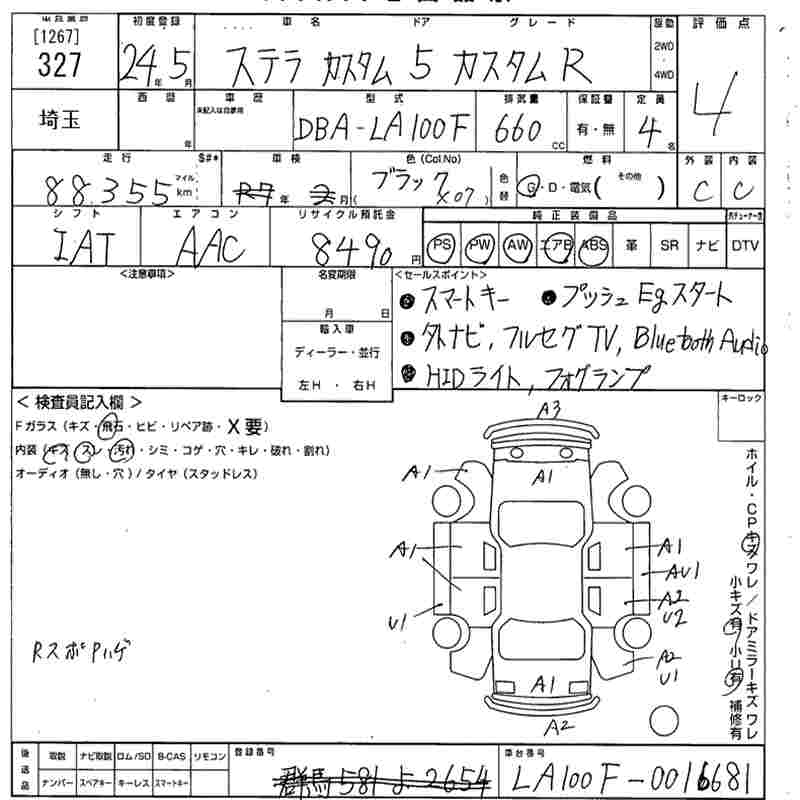 [1267]
327
埼玉
初度登録 24年 5月
車名 ドア グレード
ステラ カスタム 5 カスタム R
駆動 2WD 4WD
評価点 4
西暦 年
車歴 未記入は自家用
型式 DBA-LA100F
排気量 660 cc
保証書 有・無
定員 4名
走行 88,355 マイル km S#*
車検 R7年 2月
色(Col No) ブラック ( X07 )
色替
燃料 G・D・電気( その他 )
外装 C
内装 C
シフト IAT
エアコン AAC
リサイクル預託金 8490円
純正装備品
PS PW AW エアB ABS 革 SR ナビ DTV
<注意事項>
名変期限
月 日
輸入車
ディーラー・並行
左H ・ 右H
<セールスポイント>
● スマートキー ● プッシュEgスタート
● 外ナビ, フルセグTV, Bluetooth Audio
● HIDライト, フォグランプ
キーロック
< 検査員記入欄 >
Fガラス(キズ・飛石・ヒビ・リペア跡・X要)
内装(キズ・スレ・汚れ・シミ・コゲ・穴・キレ・破れ・割れ)
オーディオ(無し・穴)/タイヤ(スタッドレス)
A3
A1
A1
A1
A1
AU1
A2
U2
U1
A2
U1
A1
A2
RスポPハゲ
ホイル・CPキズワレ/ドアミラーキズワレ
小キズ有 小U有 補修有
後送品
取説 ナビ取説 ロム/SD B-CAS リモコン
ナンバー スペアキー キーレス スマートキー
登録番号 群馬 581 よ 2654
車台番号 LA100F-0016681